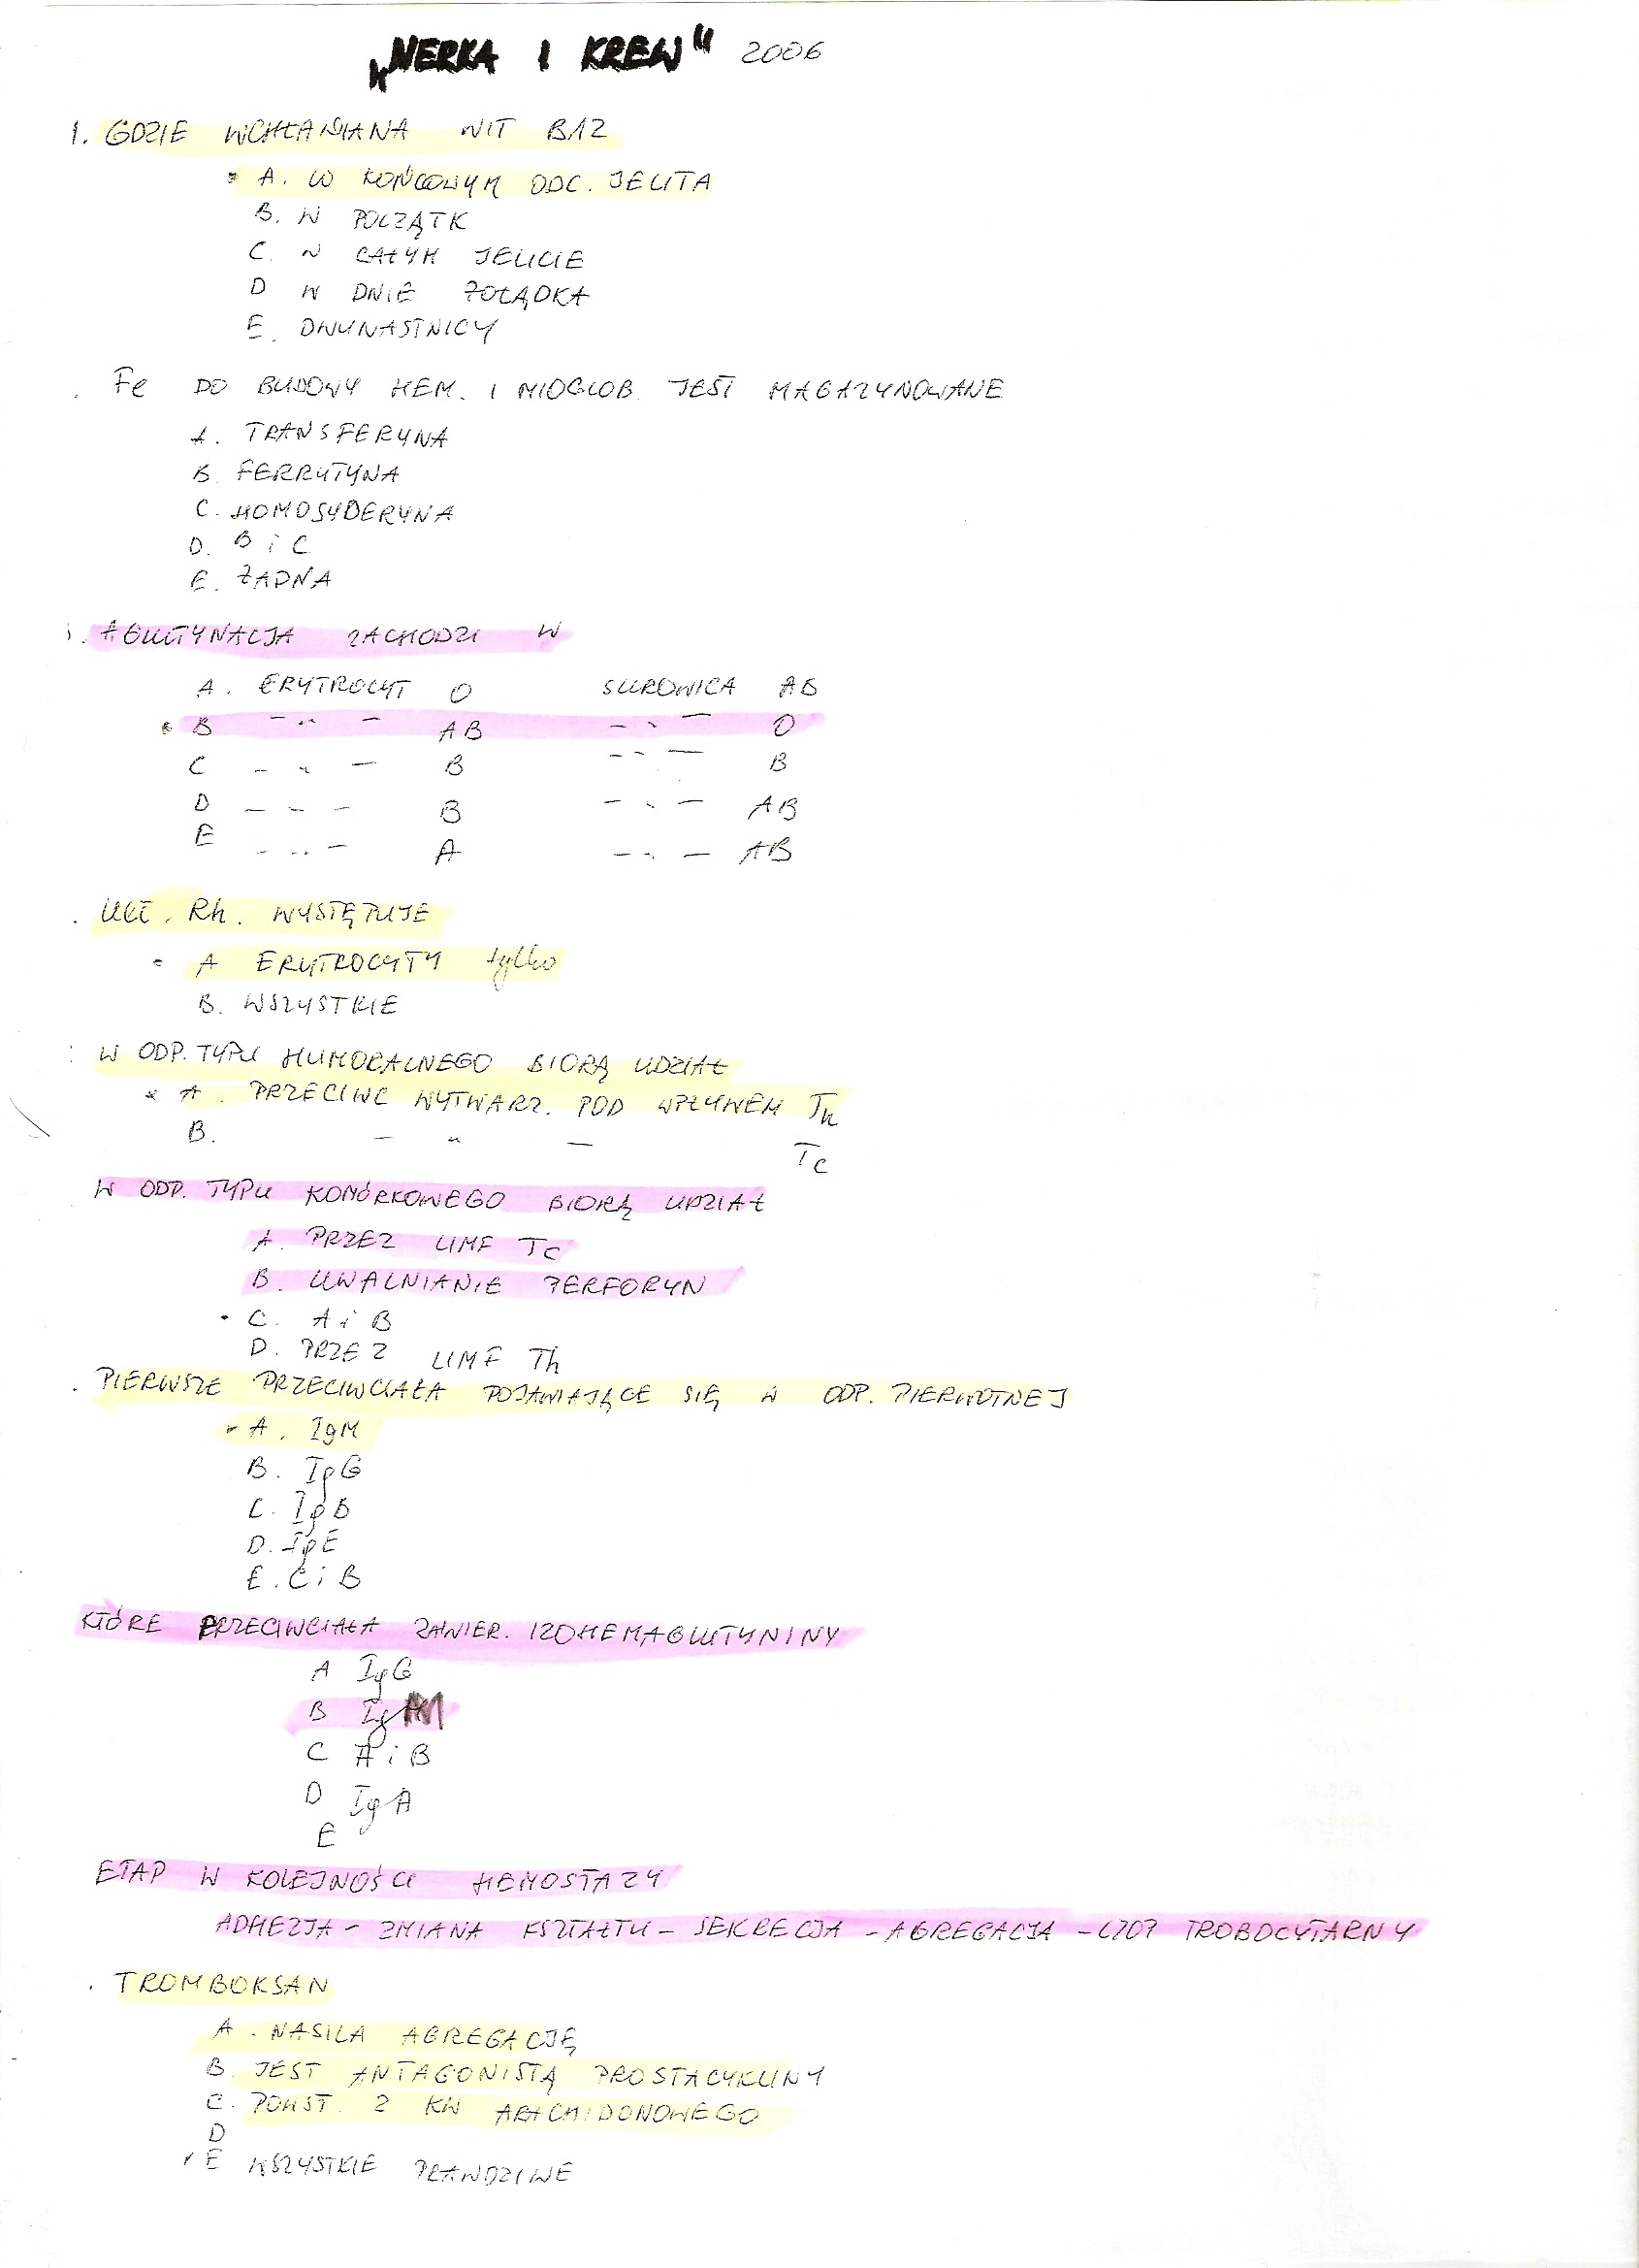 „NERKA I KREW" 2006
1. GDZIE WCHŁANIANA WIT B12
A. W KOŃCOWYM ODC. JELITA
B. W POCZĄTK
C. W CAŁYM JELICIE
D W DNIE ŻOŁĄDKA
E. DWUNASTNICY
. Fe DO BUDOWY HEM. I MIOGLOB. JEST MAGAZYNOWANE
A. TRANSFERYNA
B. FERRYTYNA
C. HOMOSYDERYNA
D. B i C
E. ŻADNA
. AGLUTYNACJA ZACHODZI W
A. ERYTROCYT O SUROWICA AB
B -"- AB -"- O
C -"- B -"- B
D -"- B -"- AB
E -"- A -"- AB
. UKŁ. Rh. WYSTĘPUJE
A ERYTROCYTY tylko
B. WSZYSTKIE
W ODP. TYPU HUMORALNEGO BIORĄ UDZIAŁ
A. PRZECIWC WYTWARZ. POD WPŁYWEM Th
B. -"- Tc
W ODP. TYPU KOMÓRKOWEGO BIORĄ UDZIAŁ
A. PRZEZ LIMF Tc
B. UWALNIANIE PERFORYN
C. A i B
D. PRZEZ LIMF Th
. PIERWSZE PRZECIWCIAŁA POJAWIAJĄCE SIĘ W ODP. PIERWOTNEJ
A. IgM
B. IgG
C. IgB
D. IgE
E. C i B
KTÓRE PRZECIWCIAŁA ZAWIER. IZOHEMAGLUTYNINY
A IgG
B IgM
C A i B
D IgA
E
ETAP W KOLEJNOŚCI HEMOSTAZY
ADHEZJA - ZMIANA KSZTAŁTU - SEKRECJA - AGREGACJA - CZOP TROBOCYTARNY
. TROMBOKSAN
A. NASILA AGREGACJĘ
B. JEST ANTAGONISTĄ PROSTACYKLINY
C. POWST. Z KW ARACHIDONOWEGO
D
E WSZYSTKIE PRAWDZIWE